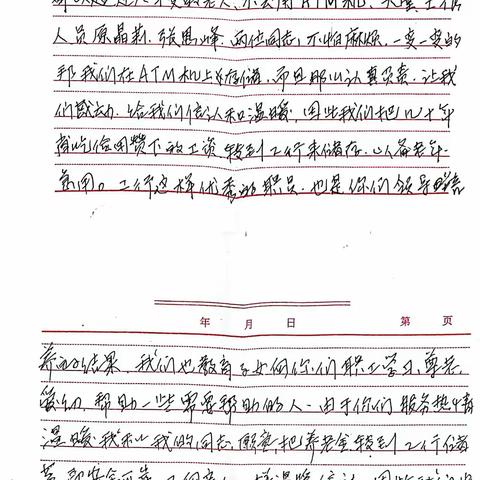 不会用ATM机、大堂工作
人员原晶莉、张凤峰两位同志，不怕麻烦，一变一变的
帮我们在ATM机上存储，而且耐心认真负责，让我
们感动，给我们信认和温暖，因此我们把几十年
省吃俭用攒下的工资，转到工行来储存，以备老年
急用。工行这样优秀的职员，也是你们领导培
年 月 日 第 页
养的结果，我们也教育子女向你们职工学习，尊老
爱幼，帮助一些需要帮助的人。由于你们服务热情
温暖我和我的同志，愿意把养老金转到工行储